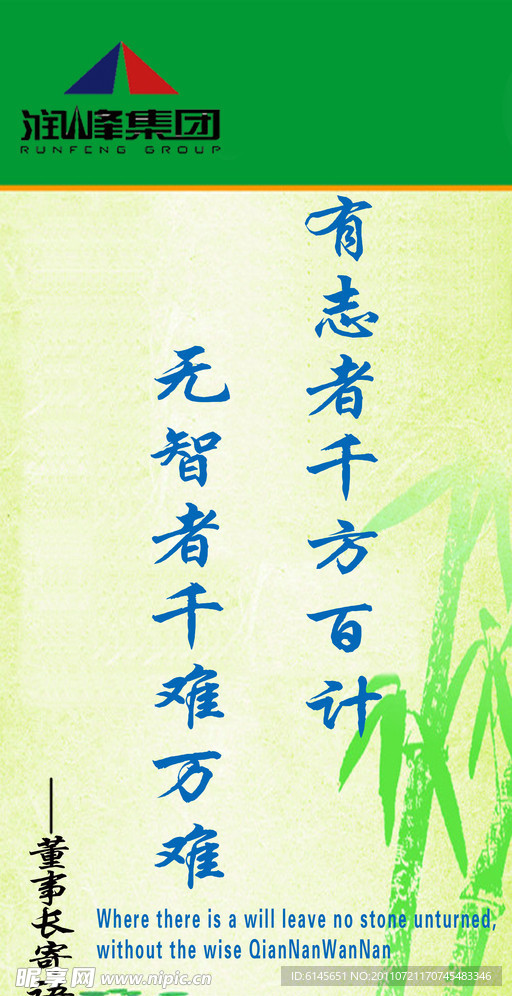 润峰集团
RUNFENG GROUP
有志者千方百计
无智者千难万难
——董事长寄语
Where there is a will leave no stone unturned,
without the wise QianNanWanNan
昵享网 www.nipic.cn
ID:6145651 NO:20110721170745483346